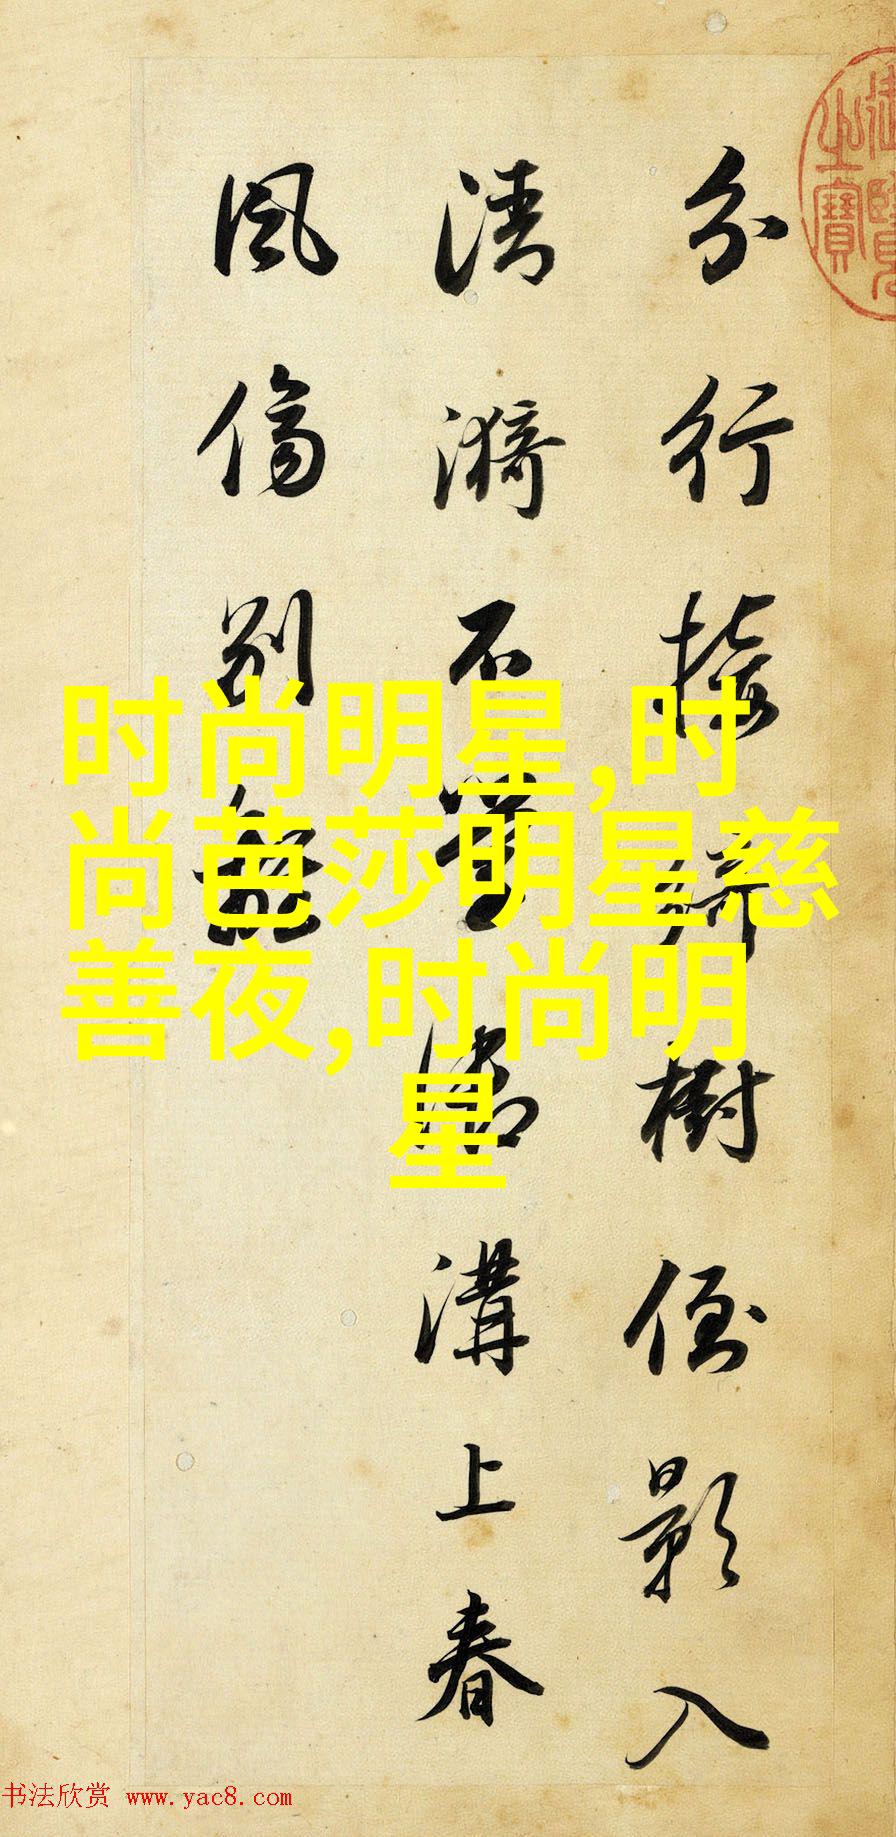 分行接綺樹倒影入
清漪不學御溝上春
風傷別離
时尚明星,时
尚芭莎明星慈
善夜,时尚明
星
书法欣赏 www.yac8.com